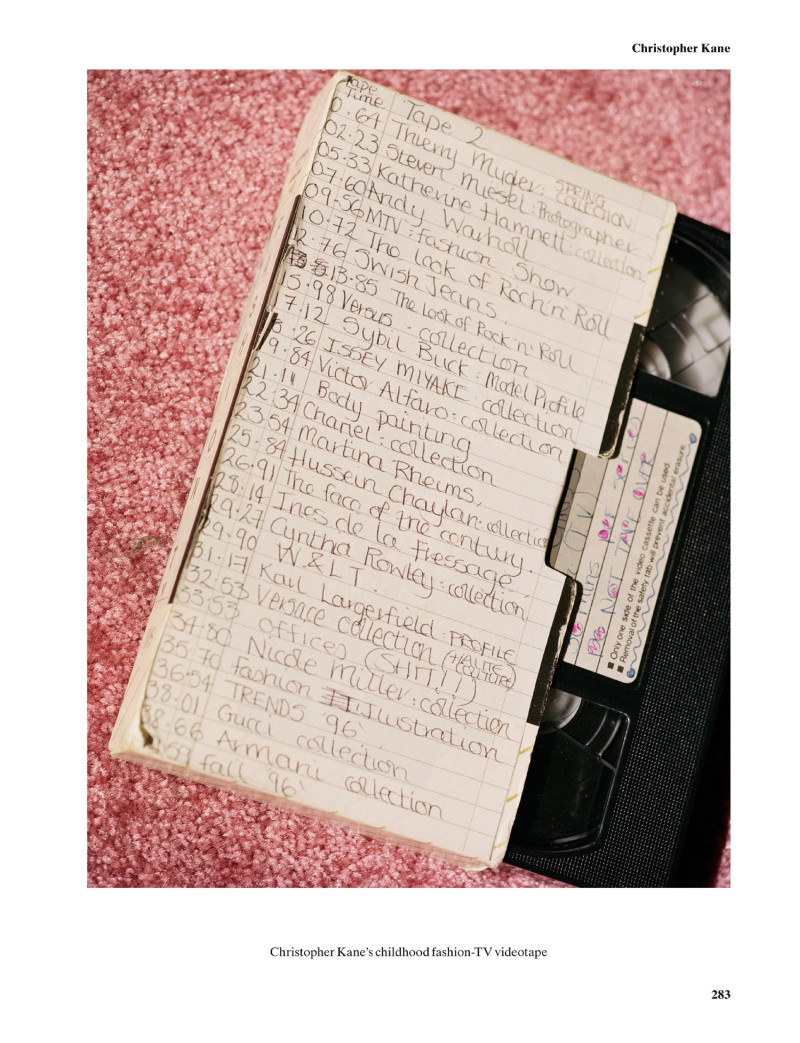 Christopher Kane
Tape
Time Tape 2
0.64 Thierry Mugler: SPRING COLLECTION
02.23 Steven Miesel: Photographer
05.33 Katherine Hamnett: collection
07.60 Andy Warholl
09.56 MTV: fashion Show
10.72 The look of Rock'n' Roll
12.76 Jwish Jeans
13.85 The look of Rock'n'Roll
5.98 Versus - collection
7.12 Sybil Buck: Model Profile
8.26 ISSEY MIYAKE: collection
9.84 Victor Alfaro: collection
21.11 Body painting
22.34 Chanel: collection
23.54 Martina Rheims
25.84 Hussein Chaylan: collection
26.91 The face of the century.
28.14 Ines de la Fressage
29.27 Cyntha Rowley: collection
9.90 W.&L.T.
31.17 Karl Largerfield: PROFILE
32.53 Versace collection (HAUTE COUTURE)
33.53 offices (SHIT!!)
34.80 Nicole Miller: collection
35.70 fashion Illustration
36.54 TRENDS '96'
38.01 Gucci collection
8.66 Armani collection
.59 fall '96'
DO NOT TAPE OVER
■ Only one side of the video cassette can be used
■ Removal of the safety tab will prevent accidental erasure
Christopher Kane's childhood fashion-TV videotape
283